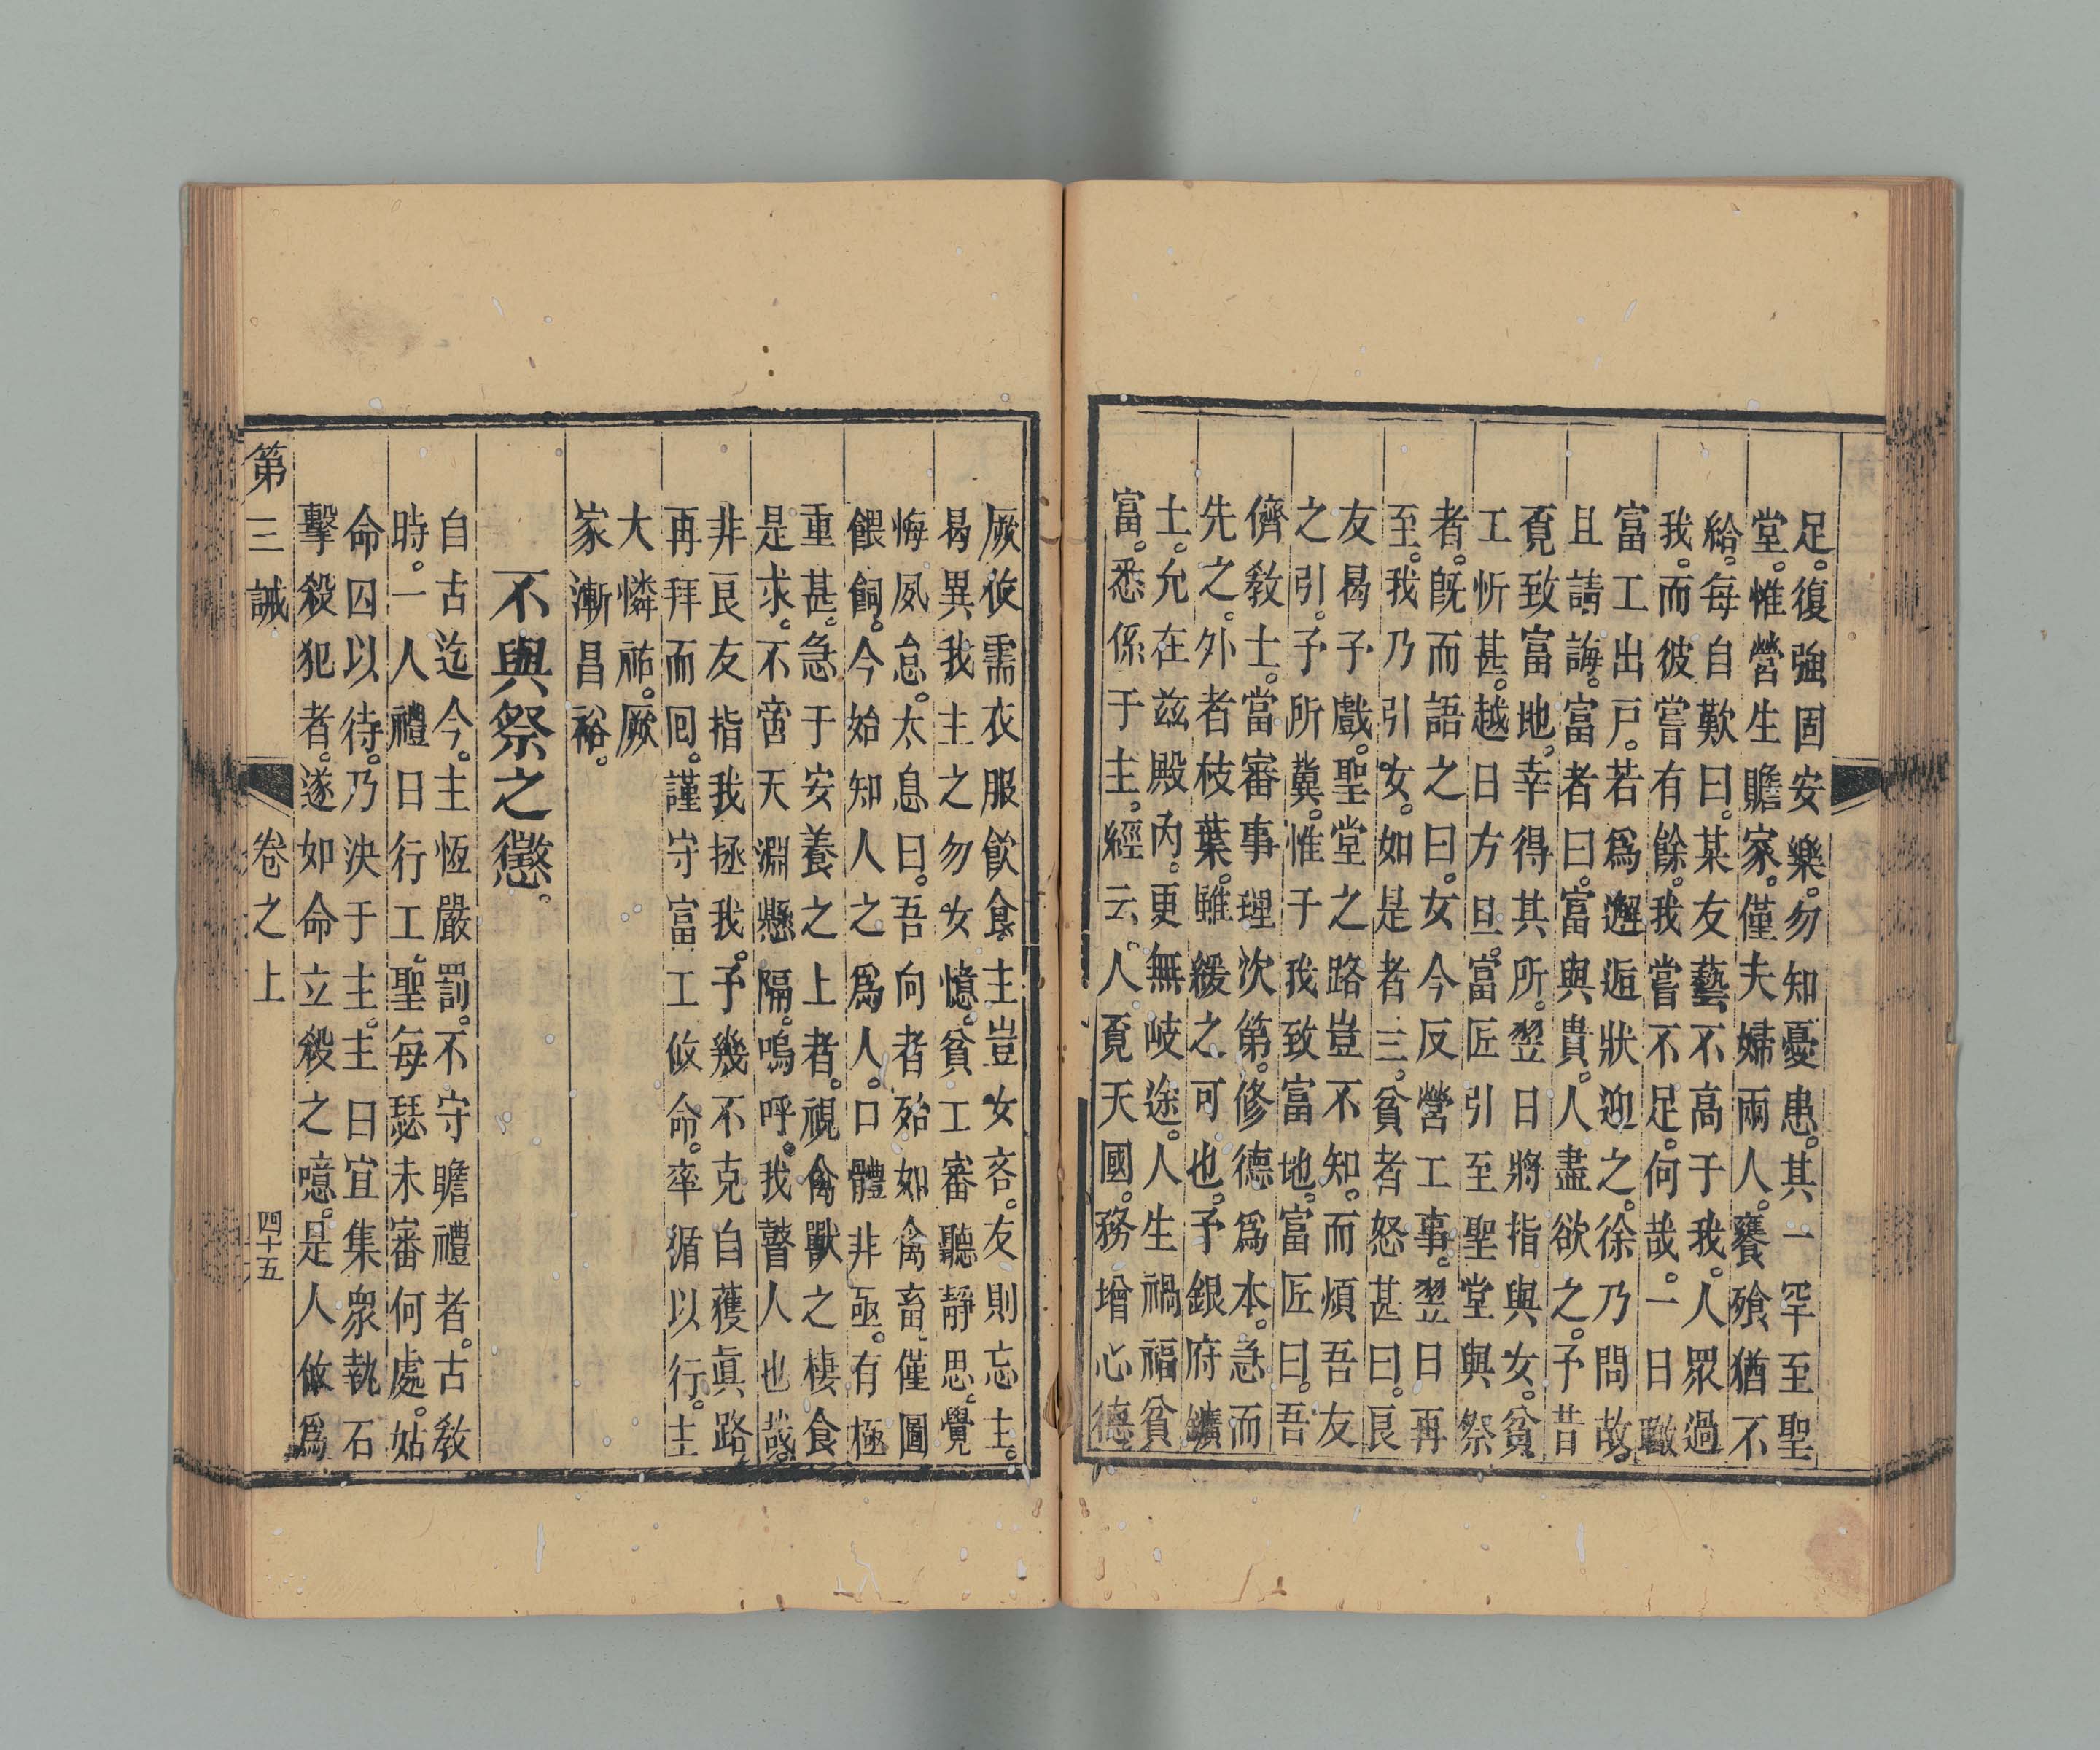 足。復強固安樂。勿知憂患。其一罕至聖
堂。惟營生贍家。僅夫婦兩人。饔飱猶不
給。每自歎曰。某友藝不高于我。人眾過
我。而彼嘗有餘。我嘗不足。何哉。一日瞰
富工出戶。若爲邂逅狀迎之。徐乃問故。
且請誨。富者曰。富與貴。人盡欲之。予昔
覓致富地。幸得其所。翌日將指與女。貧
工忻甚。越日方旦。富匠引至聖堂與祭
者。旣而語之曰。女今反營工事。翌日再
至。我乃引女。如是者三。貧者怒甚曰。艮
友曷子戲。聖堂之路豈不知。而煩吾友
之引。予所冀。惟于我致富地。富匠曰。吾
儕教士。當審事理次第。修德爲本。急而
先之。外者枝葉。雖緩之可也。予銀府鑛
土。允在兹殿內。更無岐途。人生禍福貧
富。悉係于主。經云。人覓天國。務增心德。
厥攸需衣服飮食。主豈女吝。友則忘主。
曷異我主之勿女憶。貧工審聽靜思。覺
悔夙怠。太息曰。吾向者殆如禽畜。僅圖
餵飼。今始知人之爲人。口體非亟。有極
重甚急于安養之上者。視禽獸之棲食
是求。不啻天淵懸隔。嗚呼。我瞽人也哉。
非艮友指我拯我。予幾不克自獲眞路。
再拜而囘。謹守富工攸命。率循以行。主
大憐祐。厥
家漸昌裕。
不與祭之懲。
自古迄今。主恆嚴罰。不守瞻禮者。古敎
時。一人禮日行工。聖每瑟未審何處。姑
命囚以待。乃決于主。主曰宜集衆執石
擊殺犯者。遂如命立殺之。噫。是人倣爲
第三誡 卷之上 四十五